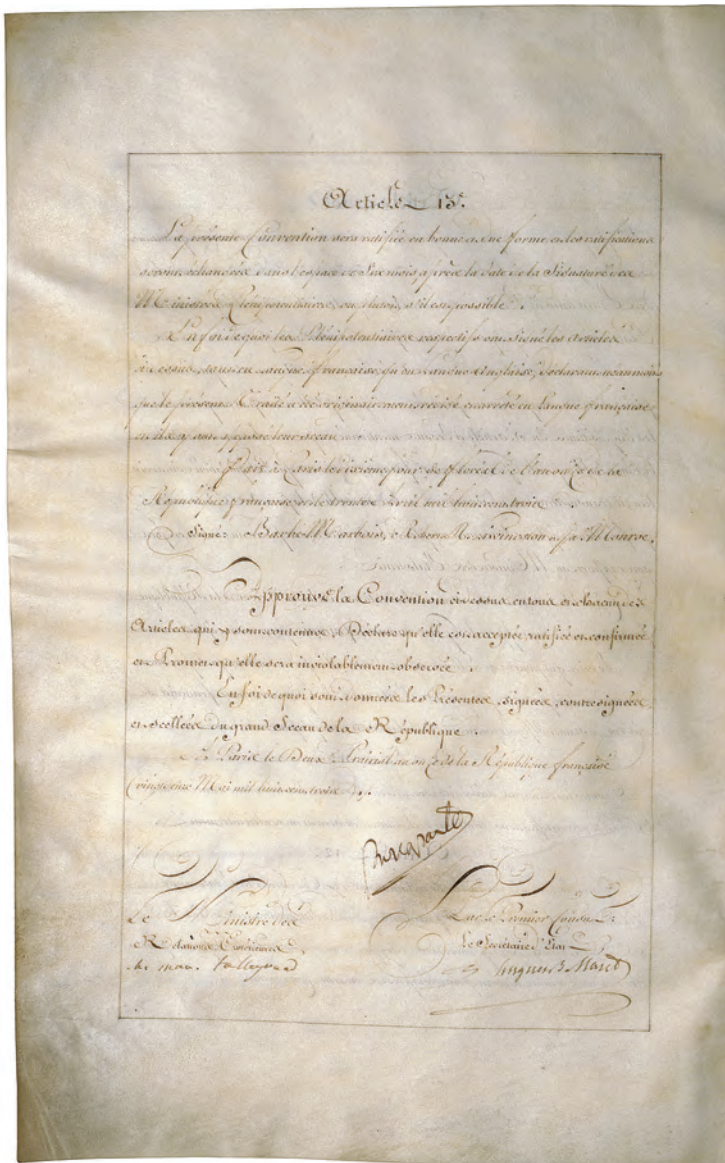 Article 13e.
La présente Convention sera ratifiée en bonne et due forme et les ratifications
seront échangées dans l'espace de Six mois, après la date de la Signature des
Ministres Plénipotentiaires, ou plutôt, s'il est possible.
En foi de quoi les Plénipotentiaires respectifs ont signé les articles
ci dessus, tant en langue française, qu'en langue anglaise, déclarant néanmoins
que le présent Traité a été originairement rédigé et arrêté en langue française,
et ils y ont apposé leur sceau.
Fait à Paris le dixième jour de floréal de l'an onze de la
République française, et le trente Avril mil huit cent trois.
Signé: Barbé Marbois, Robert R. Livingston et Ja.s Monroe.
Approuve la Convention ci dessus en tous et chacun des
Articles qui y sont contenus, Déclare qu'elle est acceptée ratifiée et confirmée
et Promet qu'elle sera inviolablement observée.
En foi de quoi sont données les Présentes, signées, contresignées
et scellées du grand Sceau de la République.
à Paris le Deux Prairial an onze de la République française
(vingt deux Mai mil huit cent trois).
Bonaparte
Le Ministre des
Relations Extérieures,
ch. mau. talleyrand
Par le Premier Consul:
Le Secrétaire d'Etat
hugues B. Maret